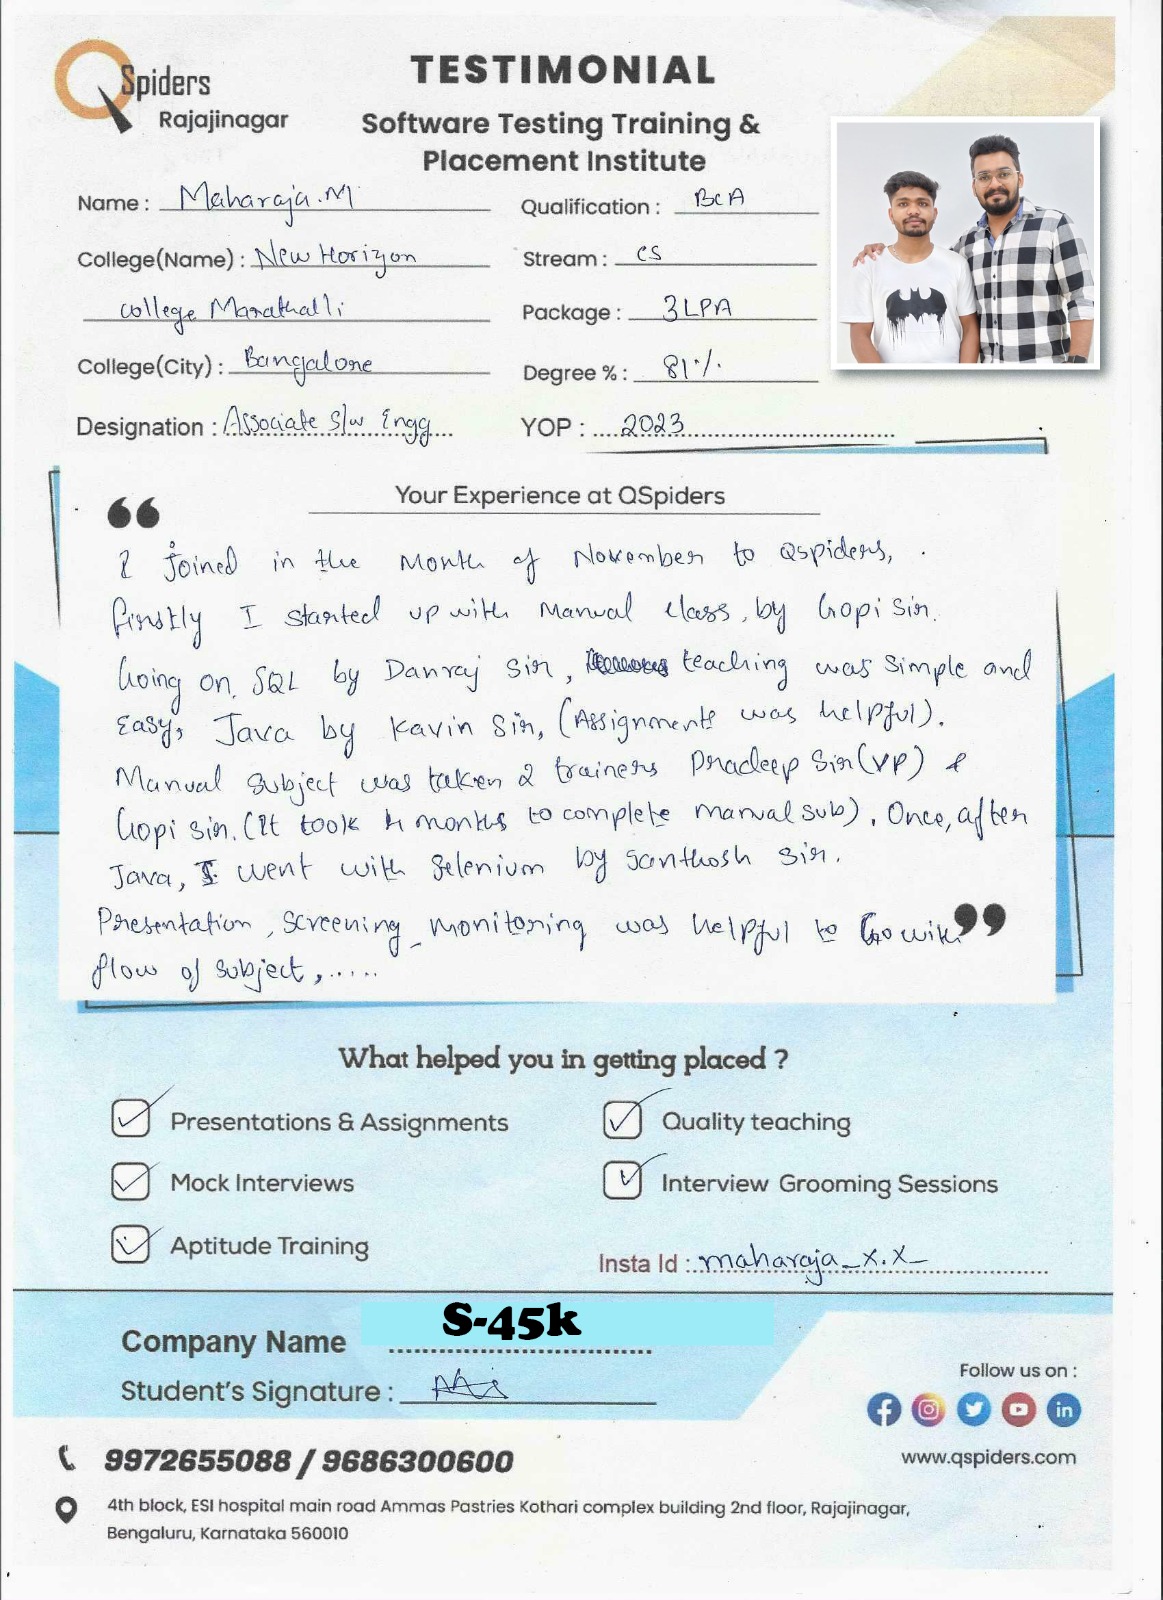 QSpiders
Rajajinagar
TESTIMONIAL
Software Testing Training &
Placement Institute
Name : Maharaja.M
Qualification : BCA
College(Name) : New Horizon
Stream : CS
college Marathalli
Package : 3LPA
College(City) : Bangalore
Degree % : 81%
Designation : Associate S/w Engg
YOP : 2023
Your Experience at QSpiders
I joined in the Month of November to Qspiders,
firstly I started up with Manual class, by Gopi Sir.
Going on, SQL by Danraj Sir, teaching was Simple and
Easy, Java by Kavin Sir, (Assignments was helpful).
Manual Subject was taken 2 trainers Pradeep Sir(VP) &
Gopi Sir. (It took 4 months to complete manual sub). Once, after
Java, I went with Selenium by Santhosh Sir.
Presentation, Screening, monitoring was helpful to Go with
flow of subject, .....
What helped you in getting placed ?
Presentations & Assignments
Quality teaching
Mock Interviews
Interview Grooming Sessions
Aptitude Training
Insta Id : maharaja_x.x_
Company Name S-45k
Student's Signature :
Follow us on :
9972655088 / 9686300600
www.qspiders.com
4th block, ESI hospital main road Ammas Pastries Kothari complex building 2nd floor, Rajajinagar,
Bengaluru, Karnataka 560010